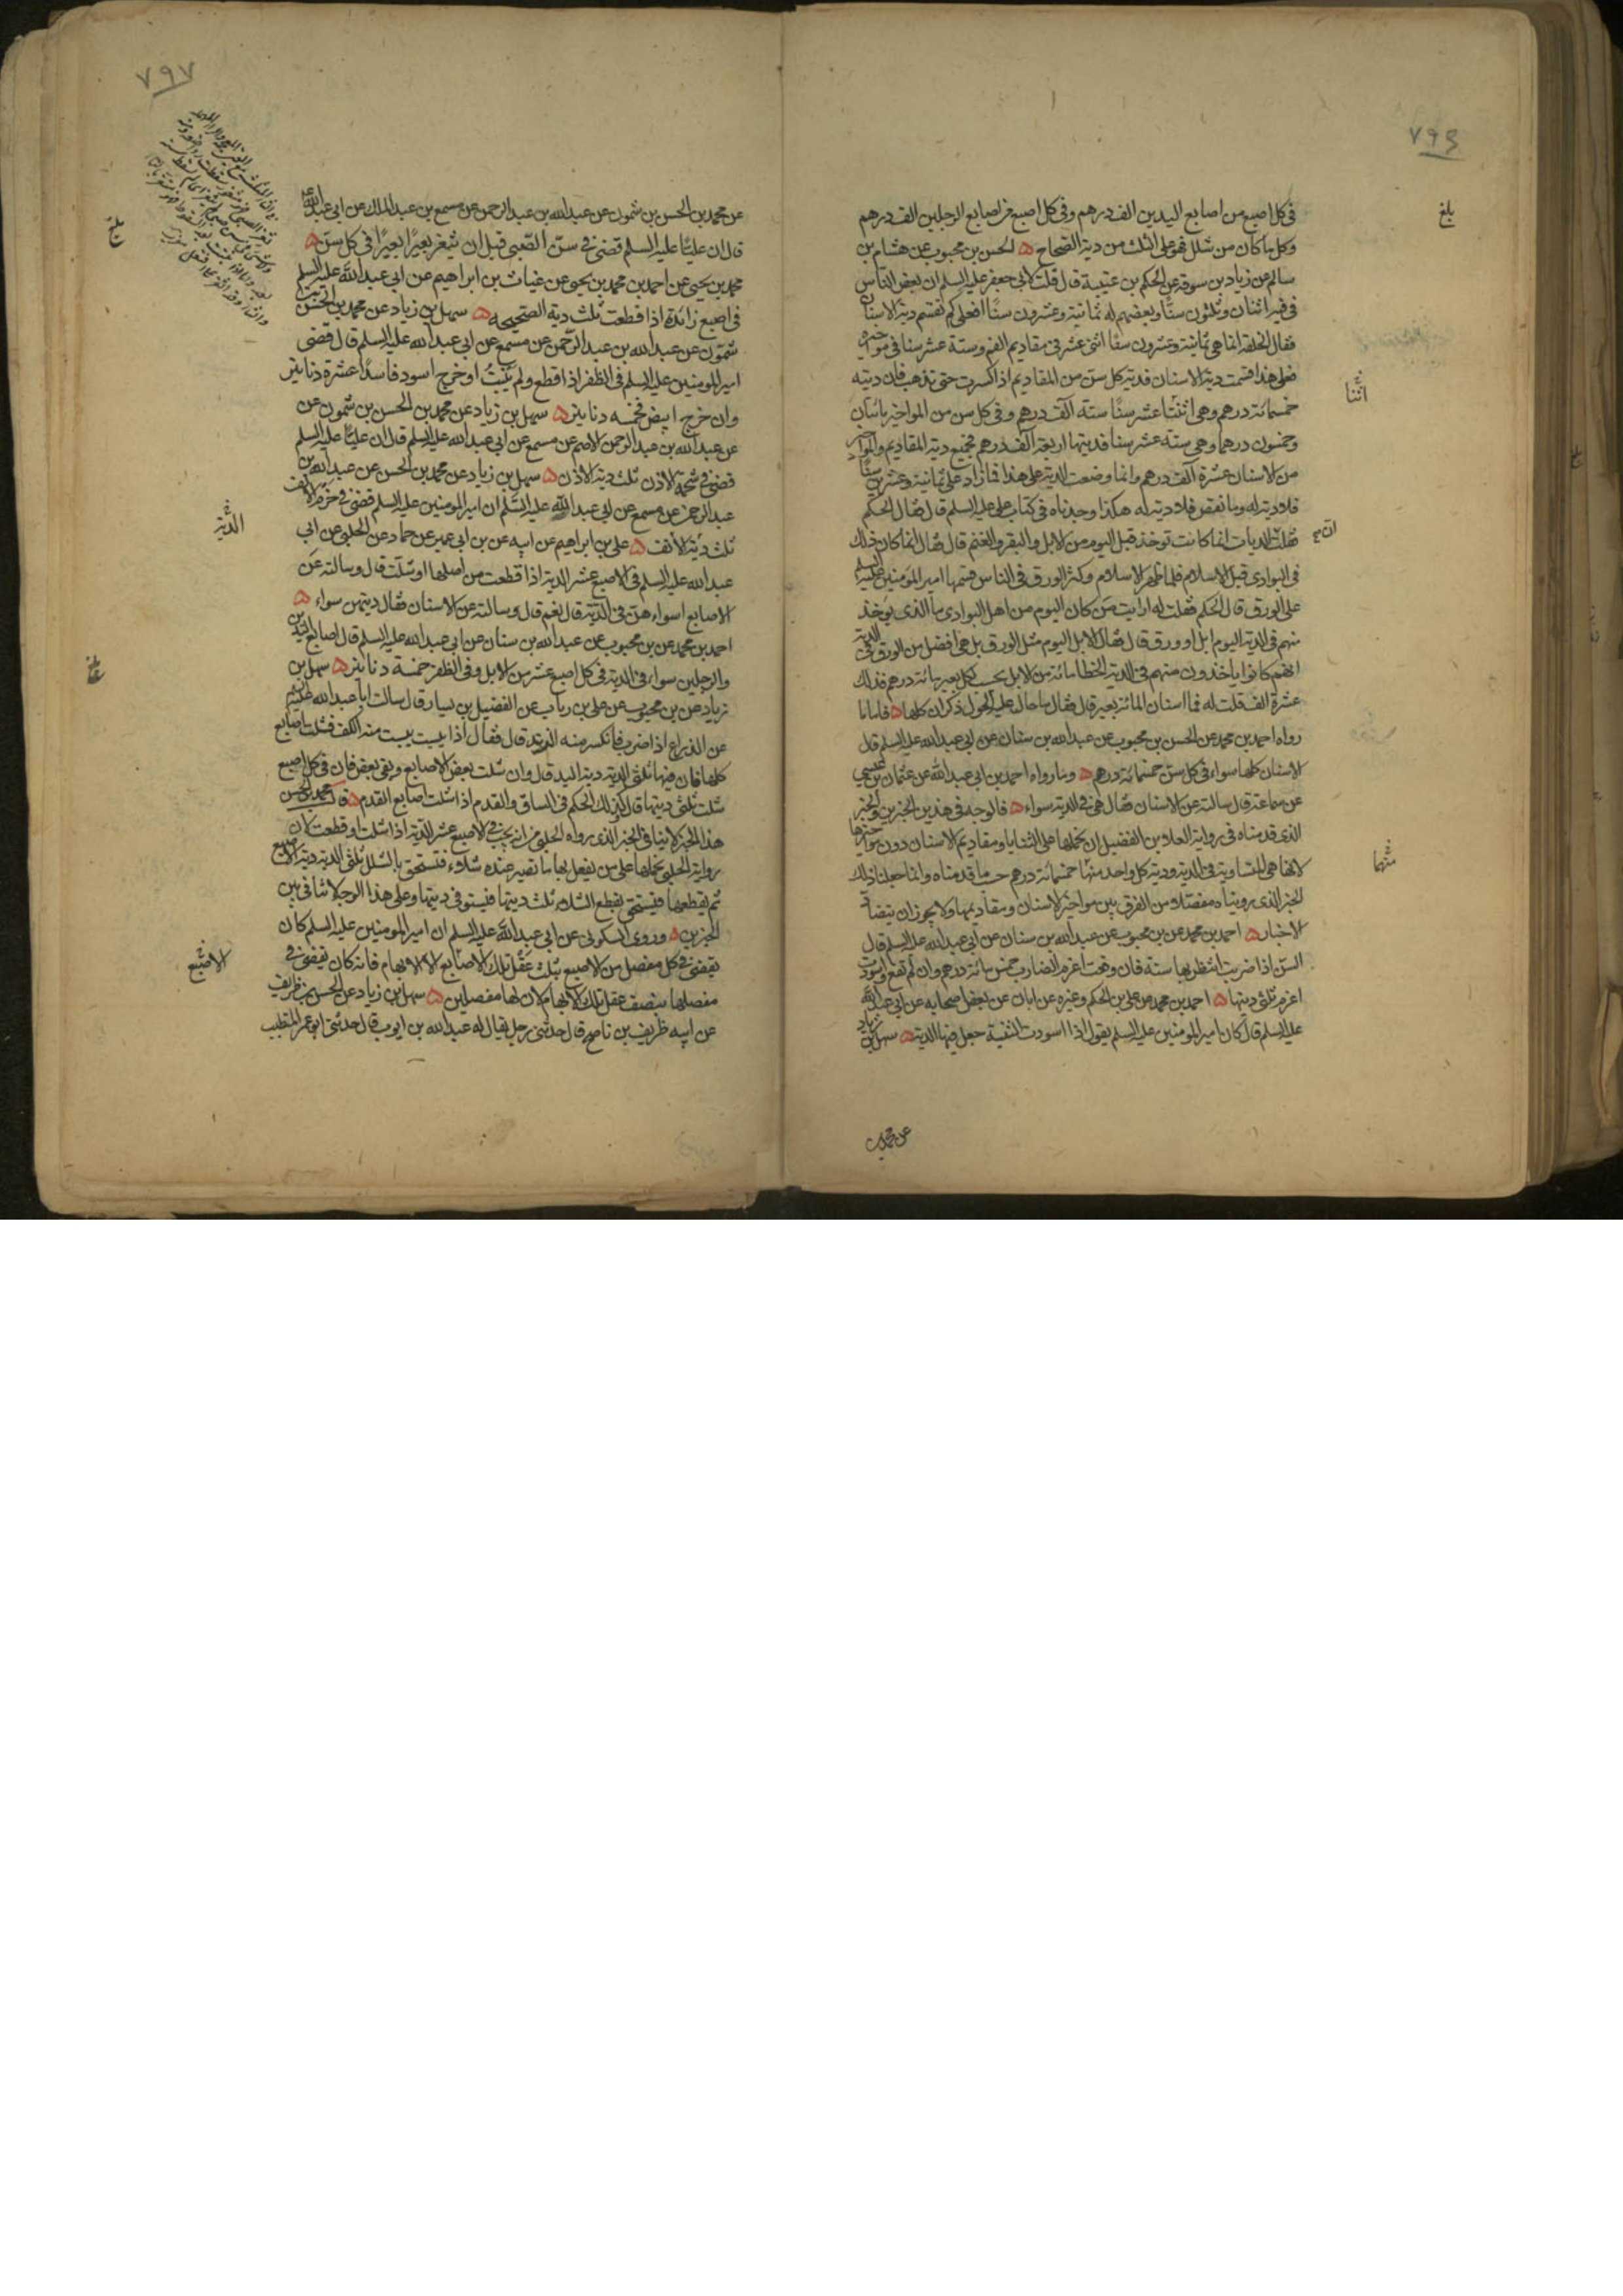 ٧٩٦
بلغ
في كل اصبع من اصابع اليدين الف درهم وفي كل اصبع من اصابع الرجلين الف درهم
وكل ما كان من شلل فهو على الثلث من دية الصحاح ۵ الحسن بن محبوب عن هشام بن
سالم عن زياد بن سوقة عن الحكم بن عتيبة قال قلت لابي جعفر عليه السلم ان بعض الناس
في فيه اثنان وثلثون سنًا وبعضهم له ثمانية وعشرون سنًا فعلى كم تقسم دية الاسنان
فقال الخلقة انما هي ثمانية وعشرون سنًا اثنى عشر في مقاديم الفم وستة عشر سنا في مواخيره
فعلى هذا قسمت دية الاسنان فدية كل سن من المقاديم اذا كسرت حتى تذهب فان ديته
خمسمائة درهم وهي اثنتا عشر سنًا ستة آلف درهم وفي كل سن من المواخير مائتان
وخمسون درهما وهي ستة عشر سنا فديتها اربعة آلف درهم فجميع دية المقاديم والمواخير
من الاسنان عشرة آلف درهم وانما وضعت الدية على هذا فما زاد على ثمانية وعشرين سنًا
فلا دية له وما نقص فلا دية له هكذا وجدناه في كتاب علي عليه السلم قال فقال الحكم
فقلت الديات انما كانت توخذ قبل اليوم من الابل والبقر والغنم قال فقال انما كان ذلك
في البوادي قبل الاسلام فلما ظهر الاسلام وكثر الورق في الناس قسمها امير المومنين عليه السلم
على الورق قال الحكم فقلت له ارايت من كان اليوم من اهل البوادي ما الذي يوخذ
منهم في الدية اليوم ابل او ورق قال فقال الابل اليوم مثل الورق بل هي افضل من الورق في الدية
انهم كانوا ياخذون منهم في الدية الخطا مائة من الابل يحسب لكل بعير مائة درهم فذلك
عشرة الف قلت له فما اسنان المائة بعير قال فقال ما حال عليه الحول ذكران كلها ۵ فاما ما
رواه احمد بن محمد عن الحسن بن محبوب عن عبدالله بن سنان عن ابي عبدالله عليه السلم قال
الاسنان كلها سواء في كل سن خمسمائة درهم ۵ وما رواه احمد بن ابي عبدالله عن عثمان بن عيسى
عن سماعة قال سالته عن الاسنان فقال هي في الدية سواء ۵ فالوجه في هذين الخبرين والخبر
الذي قدمناه في رواية العلا بن الفضيل ان نحملها على الثنايا ومقاديم الاسنان دون مواخيرها
لانها هي المتساوية في الدية ودية كل واحد منها خمسمائة درهم حسب ما قدمناه وانما حملنا ذلك
الخبر الذي رويناه مفصلا من الفرق بين مواخير الاسنان ومقاديمها ولا يجوز ان يتضاد
الاخبار ۵ احمد بن محمد عن بن محبوب عن عبدالله بن سنان عن ابي عبدالله عليه السلم قال
السن اذا ضربت انتظر بها سنة فان وقعت اغرم الضارب خمس مائة درهم وان لم تقع واسودت
اغرم ثلثي ديتها ۵ احمد بن محمد عن علي بن الحكم وغيره عن ابان عن بعض اصحابه عن ابي عبدالله
عليه السلم قال كان امير المومنين عليه السلم يقول اذا اسودت الثنية جعل فيها الدية ۵ سهل بن زياد
عن محمد بن
اثنتا
منها
٧٩٧
بلغ
عن محمد بن الحسن بن شمون عن عبدالله بن عبدالرحمن عن مسمع بن عبدالملك عن ابي عبدالله
قال ان عليًا عليه السلم قضى في سن الصبي قبل ان يثغر بعيرًا بعيرًا في كل سن ۵
محمد بن يحيى عن احمد بن محمد بن يحيى عن غياث بن ابراهيم عن ابي عبدالله عليه السلم
في اصبع زائدة اذا قطعت ثلث دية الصحيحة ۵ سهل بن زياد عن محمد بن الحسن بن
شمون عن عبدالله بن عبدالرحمن عن مسمع عن ابي عبدالله عليه السلم قال قضى
امير المومنين عليه السلم في الظفر اذا قطع ولم ينبت او خرج اسود فاسدًا عشرة دنانير
وان خرج ابيض فخمسه دنانير ۵ سهل بن زياد عن محمد بن الحسن بن شمون عن
عن عبدالله بن عبدالرحمن الاصم عن مسمع عن ابي عبدالله عليه السلم قال ان عليًا عليه السلم
قضى في شحمة الاذن ثلث دية الاذن ۵ سهل بن زياد عن محمد بن الحسن عن عبدالله بن
عبدالرحمن عن مسمع عن ابي عبدالله عليه السلم ان امير المومنين عليه السلم قضى في خرم الانف
ثلث دية الأنف ۵ علي بن ابراهيم عن ابيه عن بن ابي عمير عن حماد عن الحلبي عن ابي
عبدالله عليه السلم في الاصبع عشر الدية اذا قطعت من اصلها او شلت قال وسالته عن
الاصابع اسواء هن في الدية قال نعم قال وسالته عن الاسنان فقال ديتهن سواء ۵
احمد بن محمد عن بن محبوب عن عبدالله بن سنان عن ابي عبدالله عليه السلم قال اصابع اليدين
والرجلين سواء في الدية في كل اصبع عشر من الابل وفي الظفر خمسة دنانير ۵ سهل بن
زياد عن بن محبوب عن علي بن رياب عن الفضيل بن يسار قال سالت ابا عبدالله عليه السلم
عن الذراع اذا ضرب فانكسر منه الزند قال فقال اذا يبست منه الكف فشلت اصابع
كلها فان فيها ثلثي الدية دية اليد قال وان شلت بعض الاصابع وبقي بعض فان في كل اصبع
شلت ثلثي ديتها قال وكذلك الحكم في الساق والقدم اذا شلت اصابع القدم ۵ قال محمد بن الحسن
هذا الخبر لا ينافي الخبر الذي رواه الحلبي من انه يجب في الاصبع عشر الدية اذا شلت او قطعت لان
رواية الحلبي نحملها على من يفعل بها ما تصير عنده شلاء فتستحق بالشلل ثلثي الدية دية الاصبع
ثم يقطعها فيستحق بقطع الشلاء ثلث ديتها فيستوفي ديتها وعلى هذا الوجه لا تنافي بين
الخبرين ۵ وروى السكوني عن ابي عبدالله عليه السلم ان امير المومنين عليه السلم كان
يقضي في كل مفصل من الاصبع بثلث عقل تلك الاصابع الا الابهام فانه كان يقضي في
مفصلها بنصف عقل تلك الابهام لان لها مفصلين ۵ سهل بن زياد عن الحسن بن ظريف
عن ابيه ظريف بن ناصح قال حدثني رجل يقال له عبدالله بن ايوب قال حدثني ابو عمر المتطبب
الدية
بلغ
الاصبع